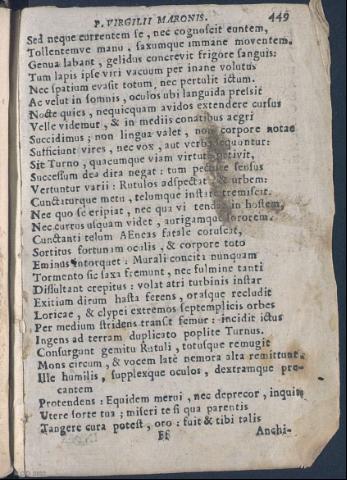 P. VIRGILII MARONIS. 449
Sed neque currentem se, nec cognoscit euntem,
Tollentemve manu, saxumque immane moventem.
Genua labant, gelidus concrevit frigore sanguis:
Tum lapis ipse viri vacuum per inane volutus
Nec spatium evasit totum, nec pertulit ictum.
Ac velut in somnis, oculos ubi languida pressit
Nocte quies, nequicquam avidos extendere cursus
Velle videmur, & in mediis conatibus aegri
Succidimus; non lingua valet, non corpore notae
Sufficiunt vires, nec vox, aut verba sequuntur:
Sic Turno, quacumque viam virtute petivit,
Successum dea dira negat: tum pectore sensus
Vertuntur varii: Rutulos adspectat, & urbem:
Cunctaturque metu, telumque instare tremiscit.
Nec quo se eripiat, nec qua vi tendat in hostem,
Nec currus usquam videt, aurigamque sororem.
Cunctanti telum AEneas fatale coruscat,
Sortitus fortunam oculis, & corpore toto
Eminus intorquet: Murali concita nunquam
Tormento sic saxa fremunt, nec fulmine tanti
Dissultant crepitus: volat atri turbinis instar
Exitium dirum hasta ferens, orasque recludit
Loricae, & clypei extremos septemplicis orbes
Per medium stridens transit femur: incidit ictus
Ingens ad terram duplicato poplite Turnus.
Consurgunt gemitu Rutuli, totusque remugit
Mons circum, & vocem late nemora alta remittunt.
Ille humilis, supplexque oculos, dextramque pre-
cantem
Protendens: Equidem merui, nec deprecor, inquit,
Utere sorte tua; miseri te si qua parentis
Tangere cura potest, oro: fuit & tibi talis
Ff Anchi-